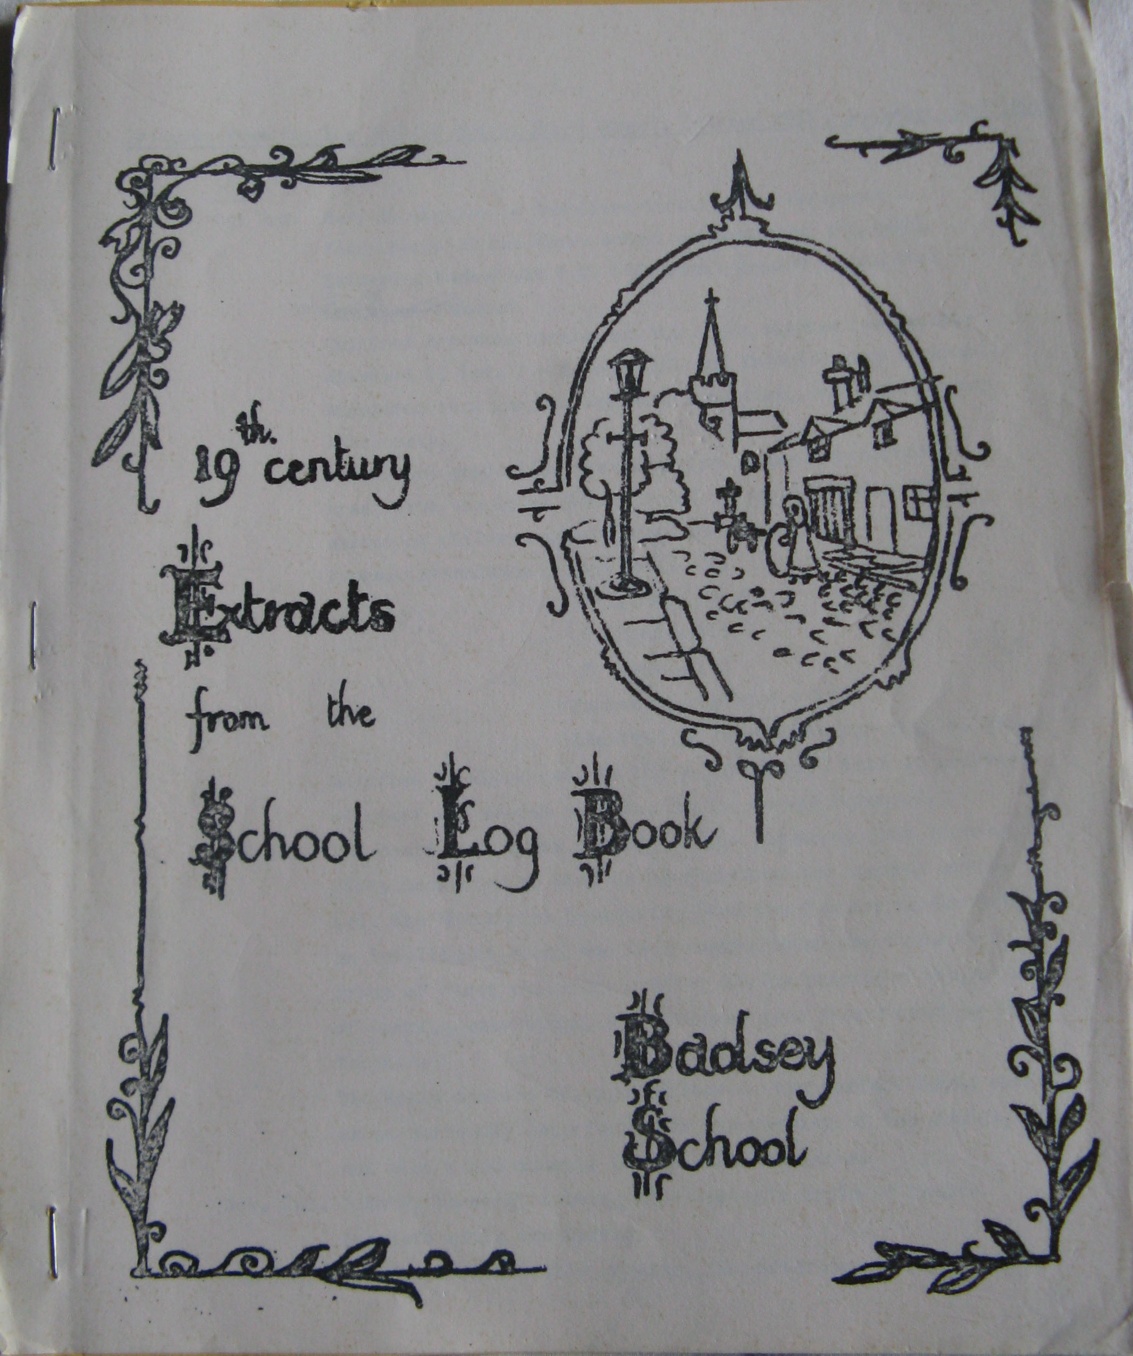 19th. century
Extracts
from the
School Log Book
Badsey
School